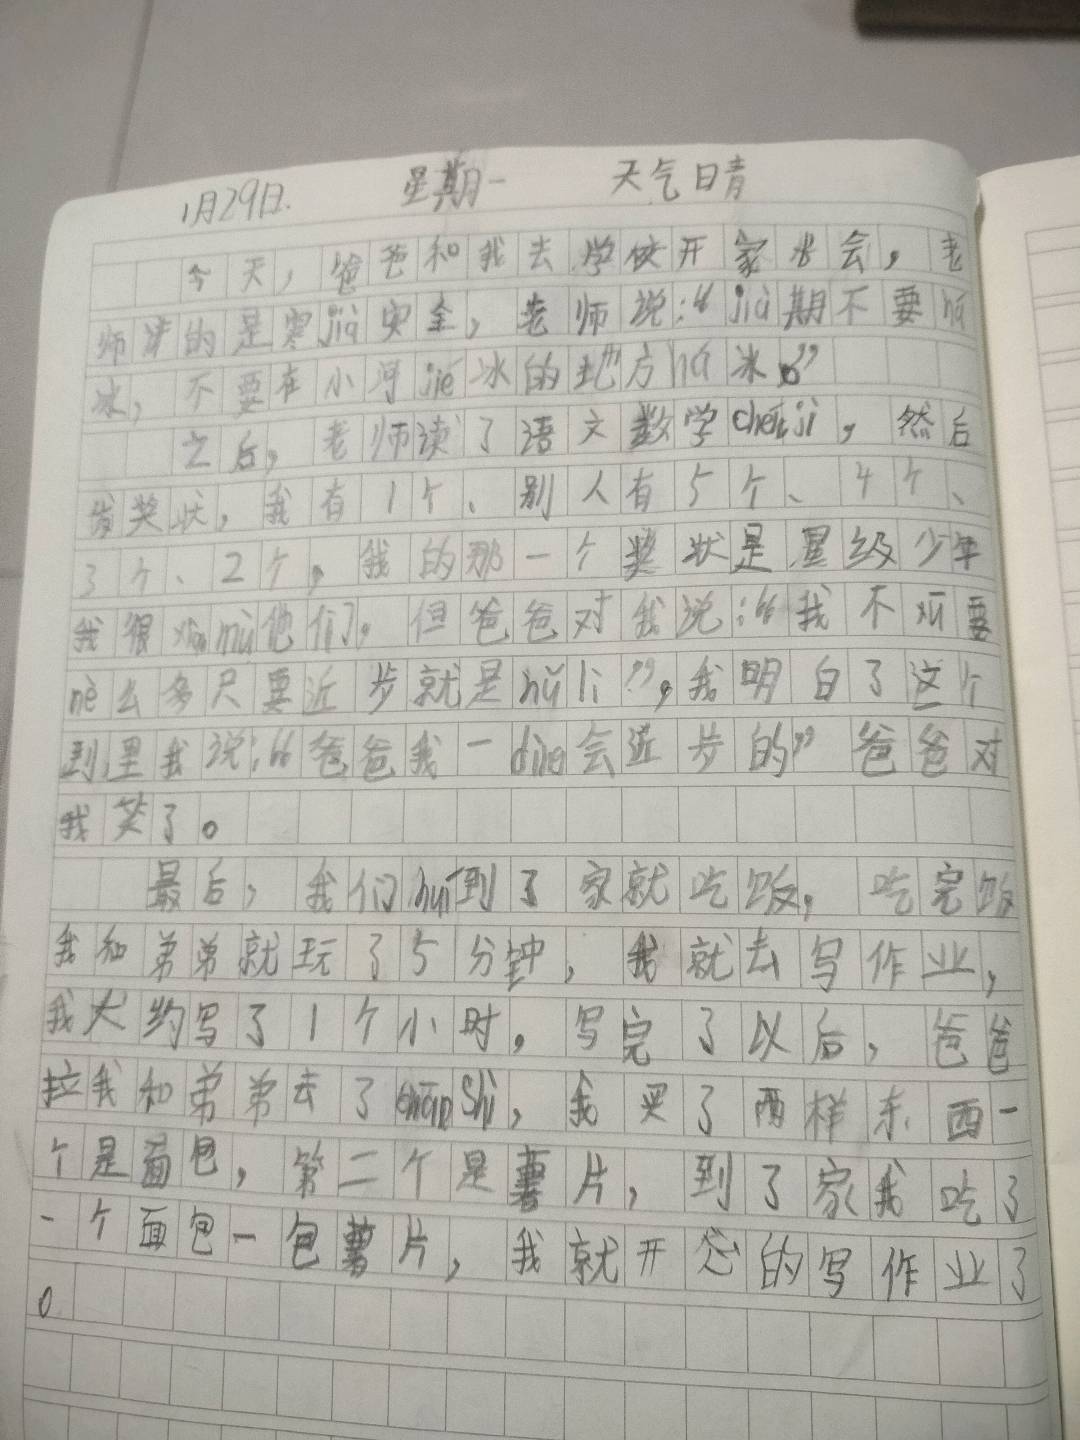 1月29日. 星期一 天气日青
今天，爸爸和我去学校开家长会，老
师讲的是寒jià安全，老师说：“jià期不要huá
冰，不要在小河jié冰的地方huá冰。”
之后，老师读了语文数学chéngjì，然后
发奖状，我有1个、别人有5个、4个、
3个、2个，我的那一个奖状是星级少年
我很xiànmù他们。但爸爸对我说：“我不须要
nè么多只要近步就是nǔlì”，我明白了这个
到里我说：“爸爸我一dìng会近步的”爸爸对
我笑了。
最后，我们huí到了家就吃饭，吃完饭
我和弟弟就玩了5分钟，我就去写作业，
我大约写了1个小时。写完了以后，爸爸
拉我和弟弟去了chāoshì，我买了两样东西一
个是面包，第二个是薯片，到了家我吃了
一个面包一包薯片，我就开心的写作业了
。